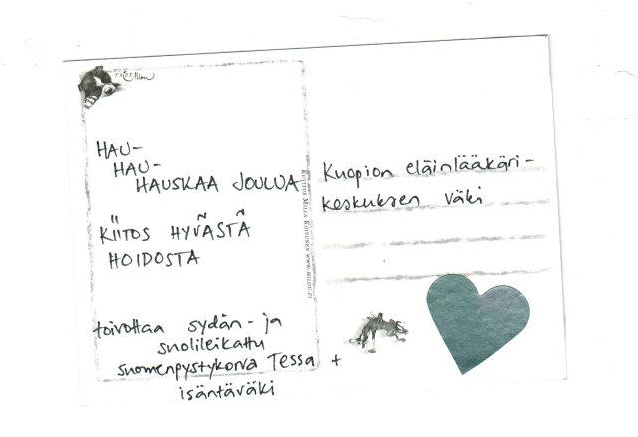 HAU-
HAU-
HAUSKAA JOULUA
KIITOS HYVÄSTÄ
HOIDOSTA
toivottaa sydän- ja
suolileikattu
suomenpystykorva Tessa +
isäntäväki
Kuopion eläinlääkäri-
keskuksen väki
WWW.MILOU.FI